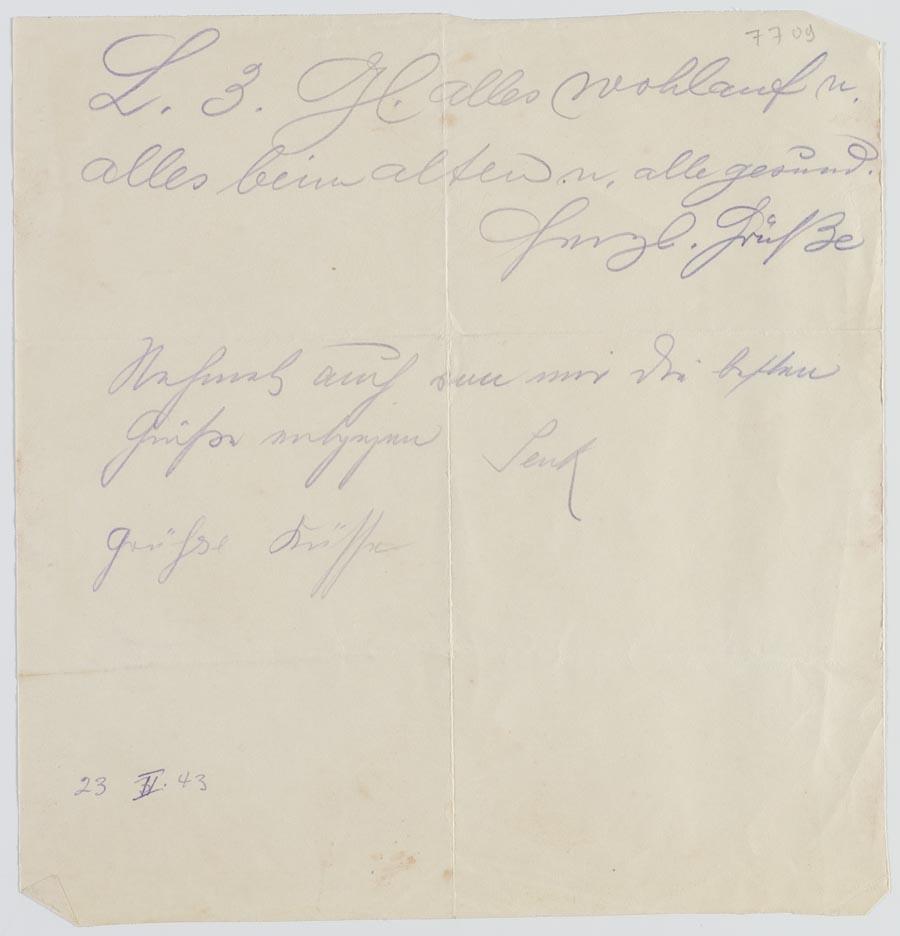 7709
L. 3. H. alles wohlauf u.
alles beim alten u. alle gesund.
Herzl. Grüße
Nehmet auch von mir die besten
Grüße entgegen Senk
Grüße Küsse
23 IV. 43